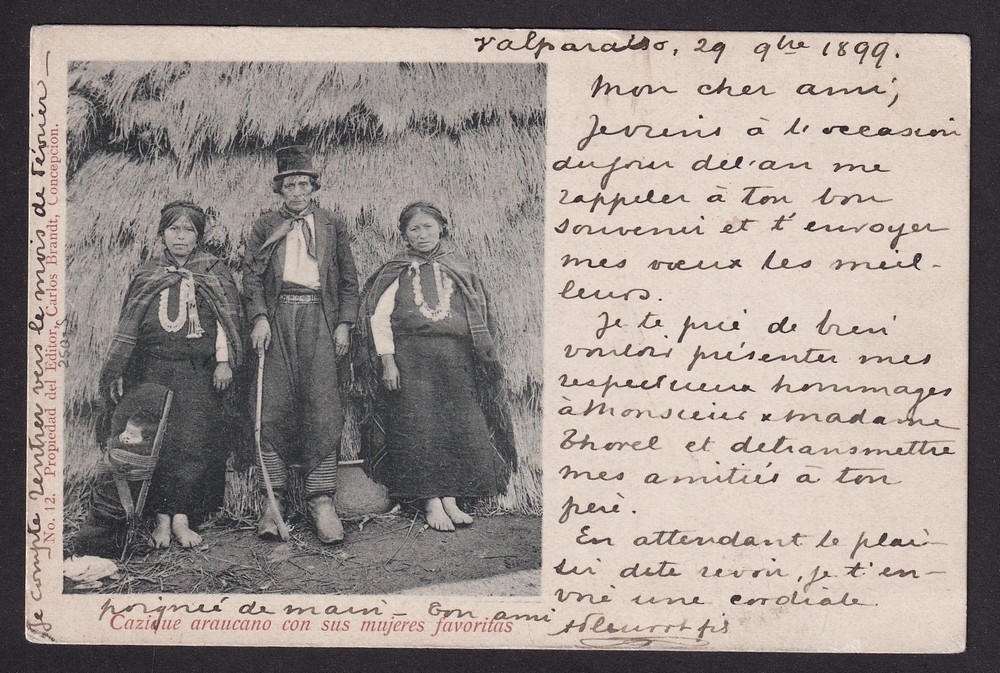 Valparaiso, 29 9bre 1899.
Mon cher ami,
Je viens à l'occasion
du jour de l'an me
rappeler à ton bon
souvenir et t'envoyer
mes vœux les meil-
leurs.
Je te prie de bien
vouloir présenter mes
respectueux hommages
à Monsieur & Madame
Thorel et de transmettre
mes amitiés à ton
père.
En attendant le plai-
sir de te revoir, je t'en-
voie une cordiale
poignée de main - Ton ami
fils
Je compte rentrer vers le mois de Février -
No. 12. Propiedad del Editor, Carlos Brandt, Concepcion.
Cazique araucano con sus mujeres favoritas